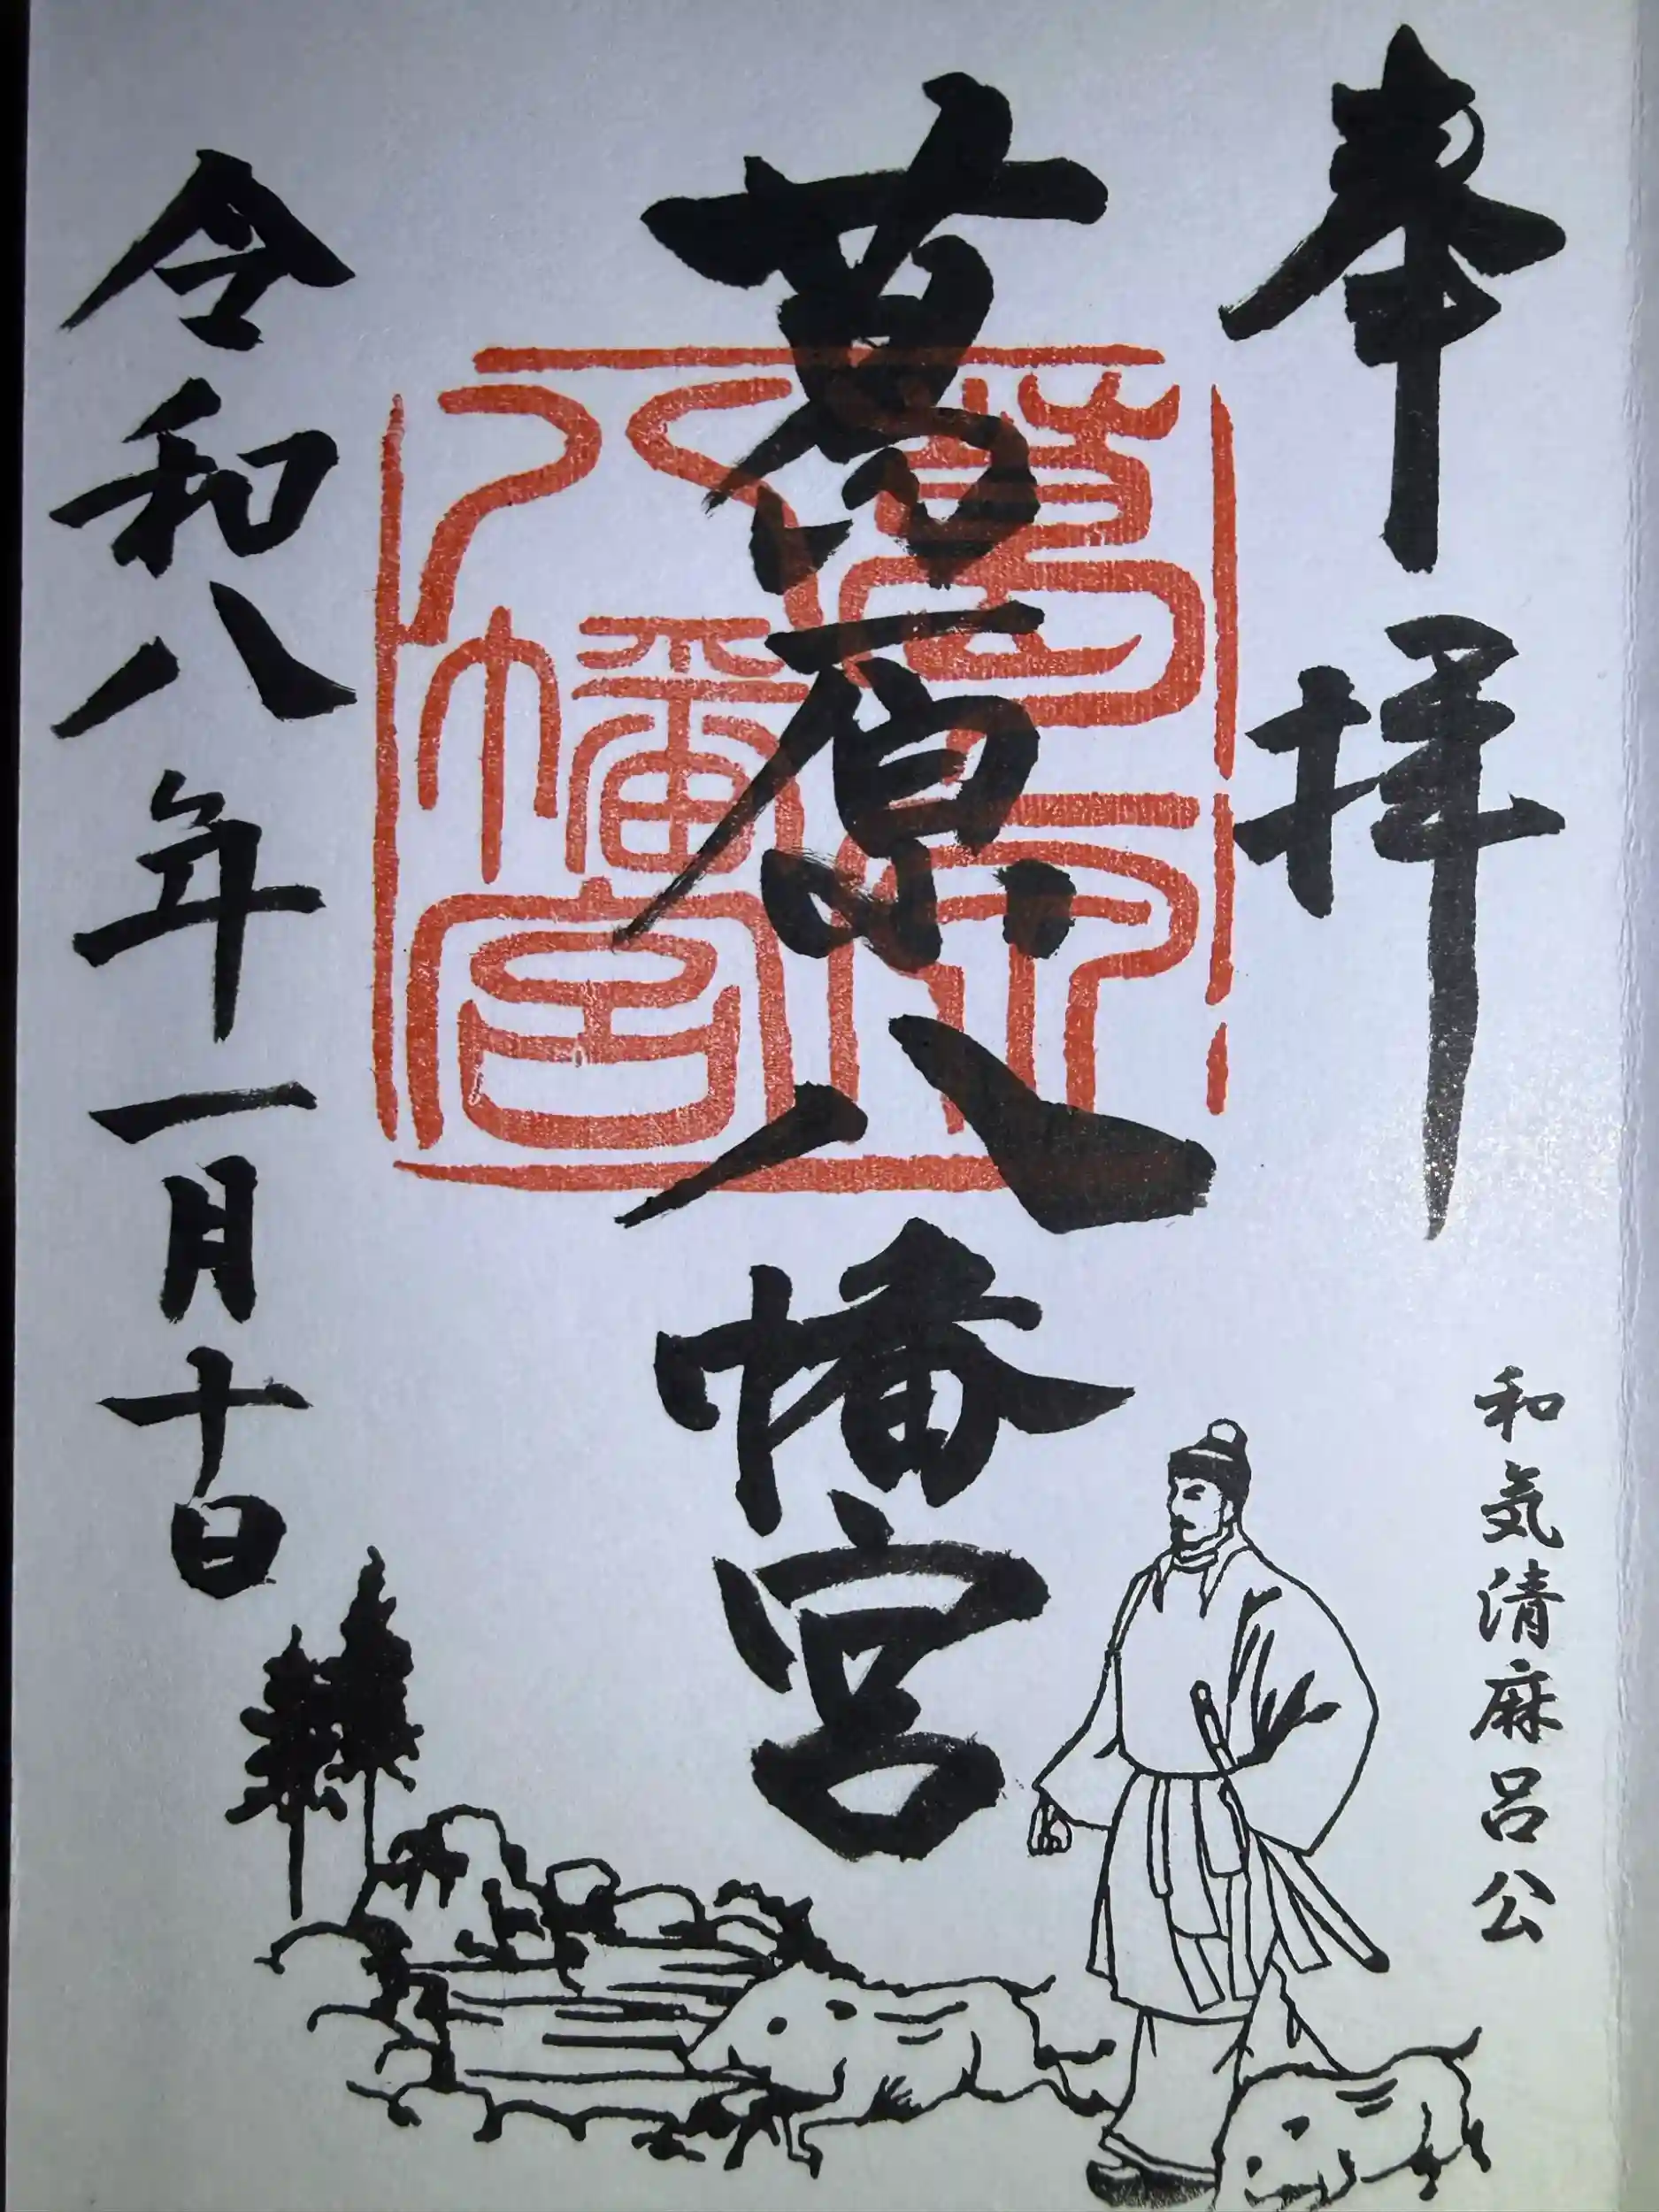 奉拝
和気清麻呂公
葛原八幡宮
葛原八幡宮
令和八年一月十日